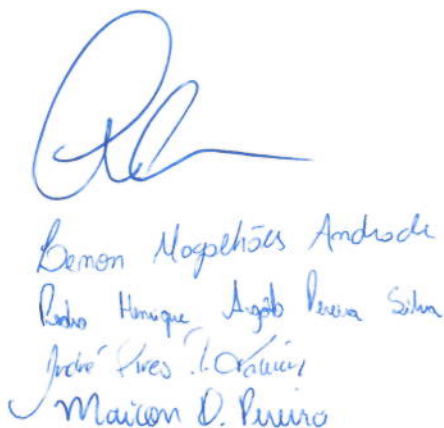 Benon Magalhães Andrade
Pedro Henrique Argôlo Pereira Silva
André Pires
Maicon D. Pereira